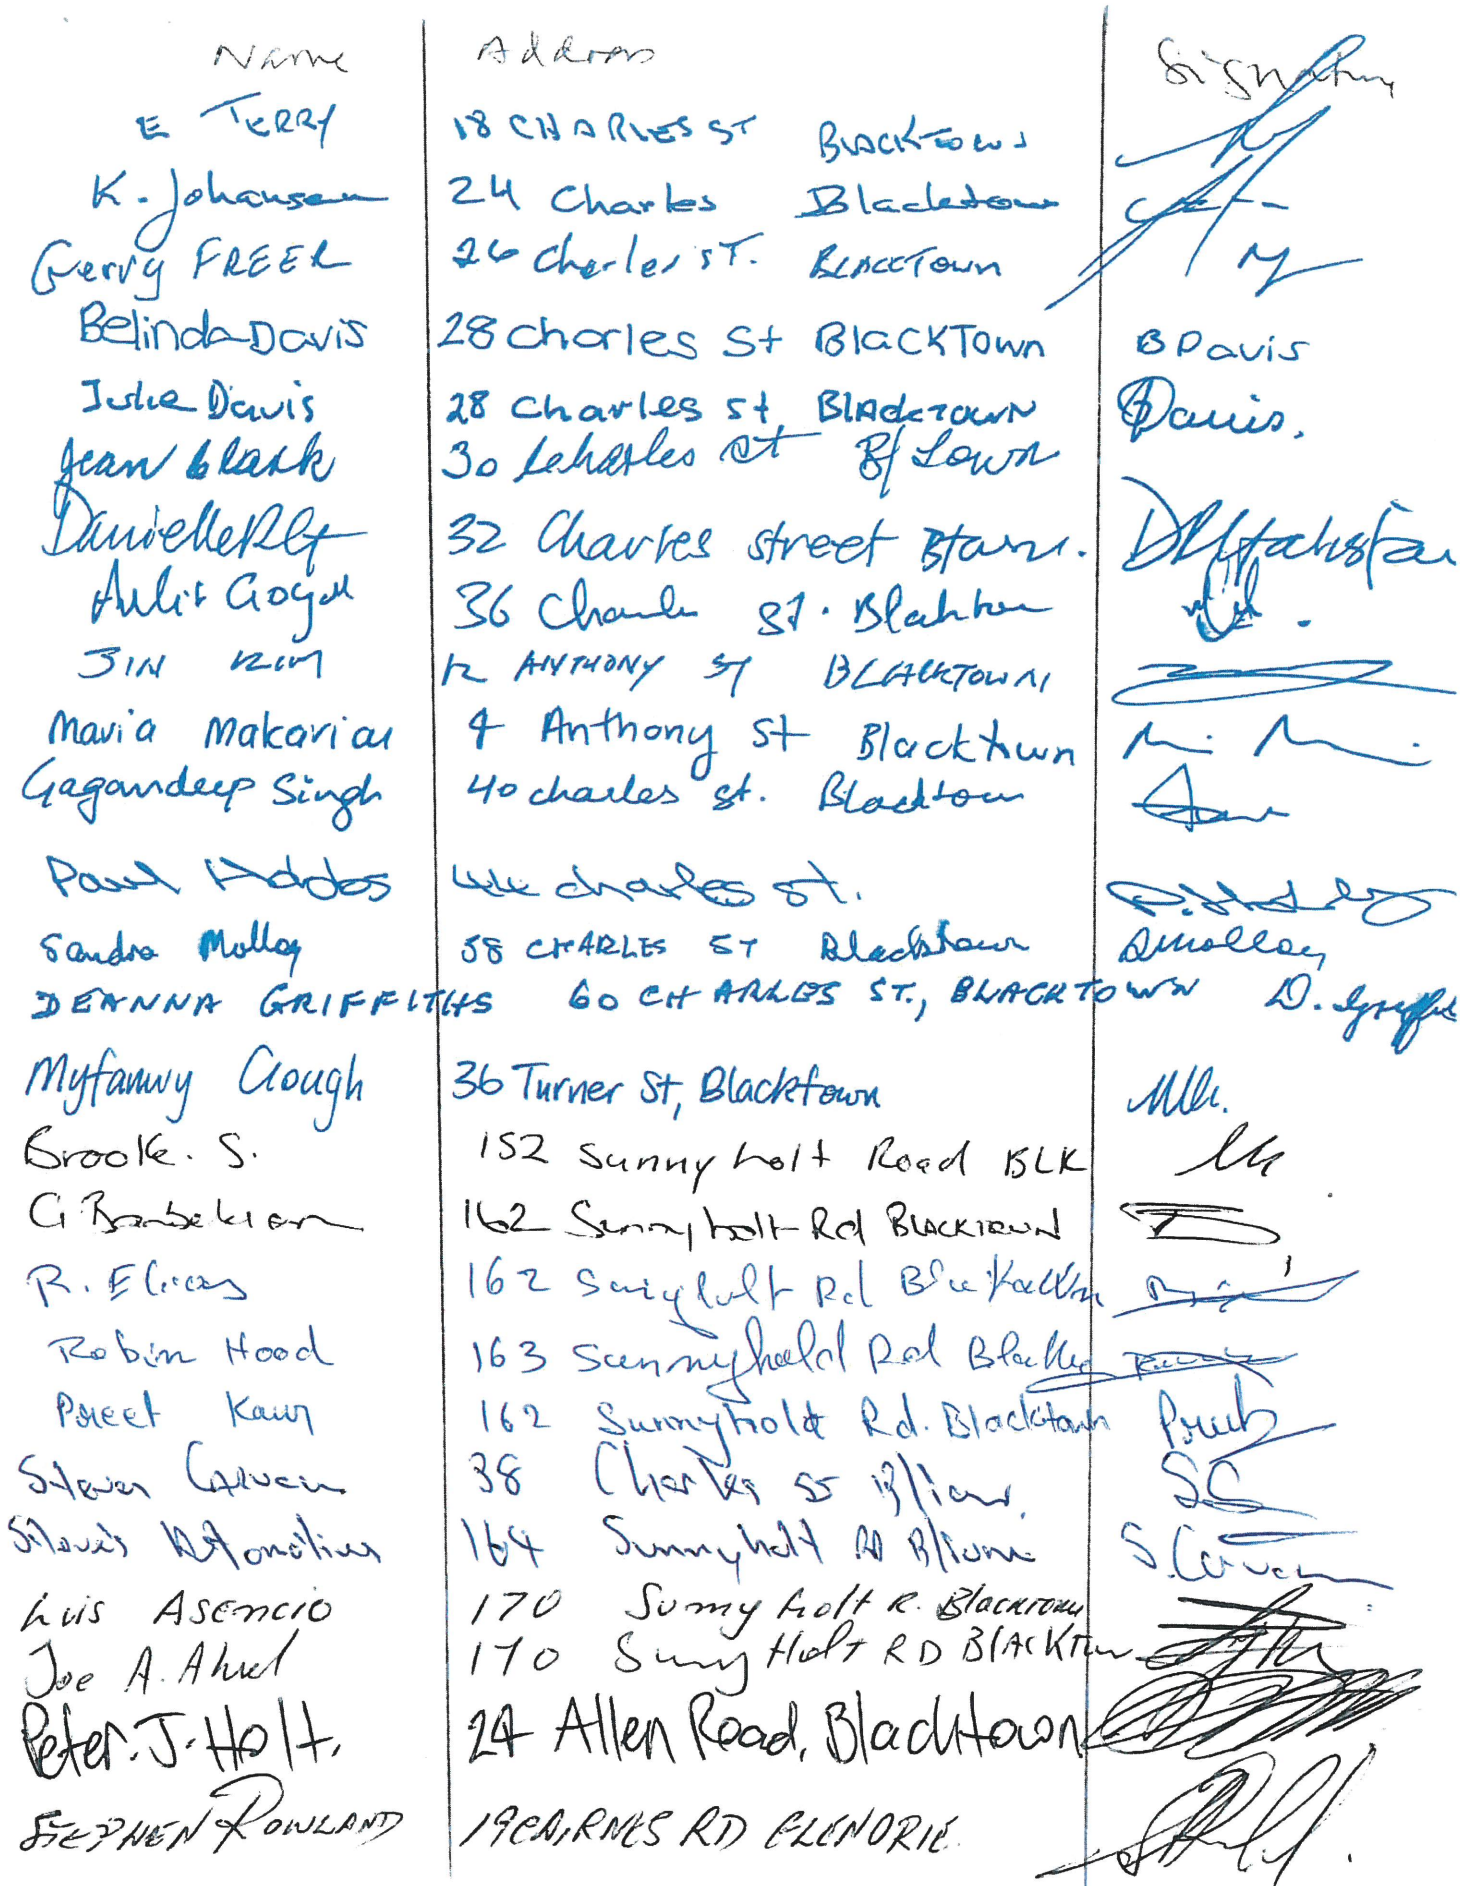 Name Address Signature
E TERRY 18 CHARLES ST BLACKTOWN
K. Johansen 24 Charles Blacktown
Gerry FREER 26 Charles ST. BLACKTOWN
Belinda Davis 28 Charles St BlackTown B Davis
Julie Davis 28 Charles St BlackTOWN Davis.
Jean 30 Charles St B/Town
Danielle 32 Charles Street Btown.
36 St.
JIN KIM 12 ANTHONY ST BLACKTOWN
Maria Makarian 4 Anthony St Blacktown
Gagandeep Singh 40 charles st. Blacktown
Paul Hobbs charles st.
Sandra Molloy 58 CHARLES ST Blacktown SMolloy
DEANNA GRIFFITHS 60 CHARLES ST., BLACKTOWN D.
Myfanwy Clough 36 Turner St, Blacktown
Brooke. S. 152 Sunnyholt Road BLK
G 162 Sunnyholt Rd BLACKTOWN
R. Elias 162 Rd
Robin Hood 163 Rd
Preet Kaur 162 Sunnyholt Rd. Blacktown Preet
Steven 38 Charles St B/Town
164 Sunnyholt Rd B/Town S.
Luis Asencio 170 Sunny holt R. Blacktown
Joe A. 170 Suny Holt RD BlACKTown
Peter. J. Holt. 24 Allen Road, Blacktown
STEPHEN ROWLAND 19 CAIRNES RD GLENORIE.